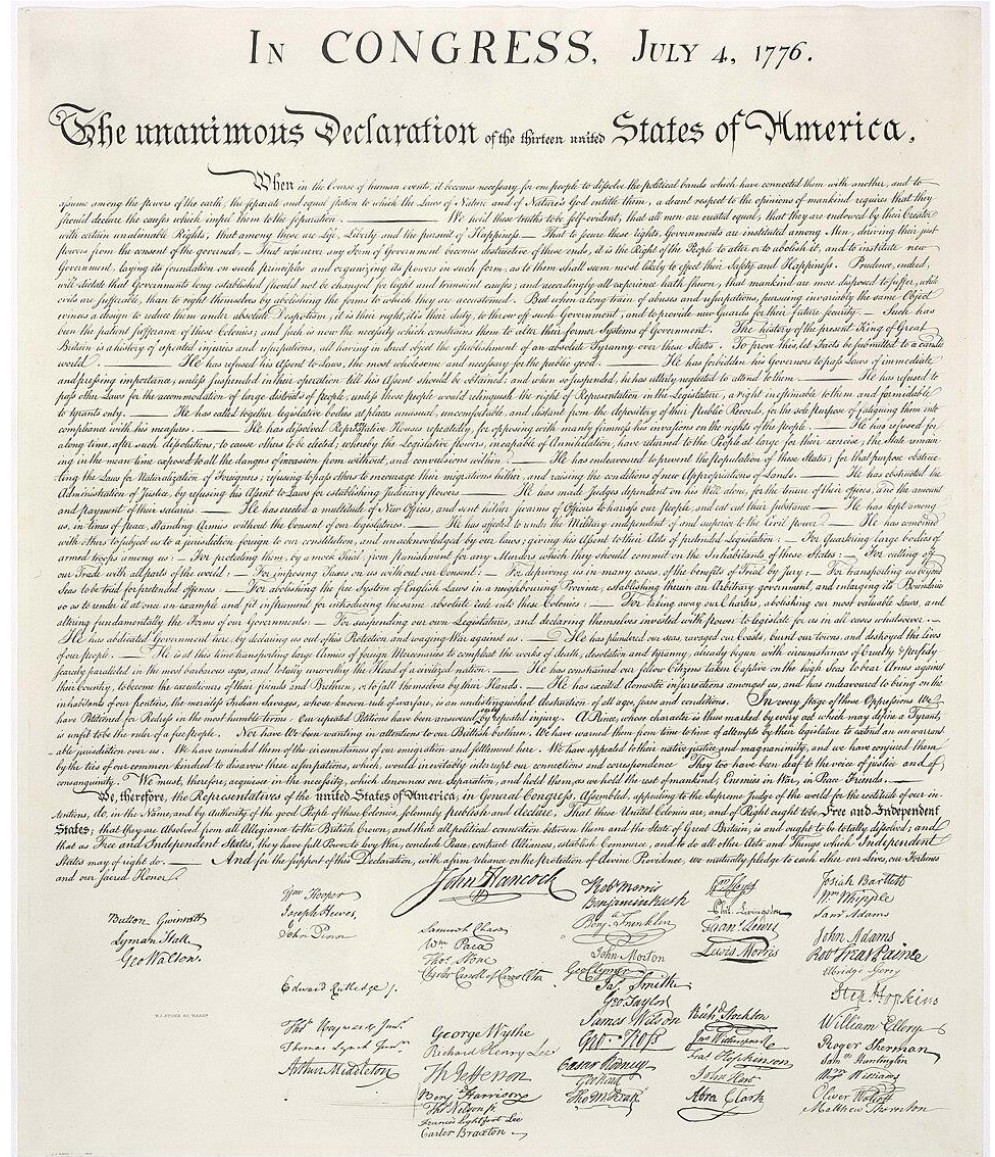 IN CONGRESS, JULY 4, 1776.
The unanimous Declaration of the thirteen united States of America,
When in the Course of human events, it becomes necessary for one people to dissolve the political bands which have connected them with another, and to
assume among the powers of the earth, the separate and equal station to which the Laws of Nature and of Nature's God entitle them, a decent respect to the opinions of mankind requires that they
should declare the causes which impel them to the separation. ——— We hold these truths to be self-evident, that all men are created equal, that they are endowed by their Creator
with certain unalienable Rights, that among these are Life, Liberty and the pursuit of Happiness.— That to secure these rights, Governments are instituted among Men, deriving their just
powers from the consent of the governed,— That whenever any Form of Government becomes destructive of these ends, it is the Right of the People to alter or to abolish it, and to institute new
Government, laying its foundation on such principles and organizing its powers in such form, as to them shall seem most likely to effect their Safety and Happiness. Prudence, indeed,
will dictate that Governments long established should not be changed for light and transient causes; and accordingly all experience hath shewn, that mankind are more disposed to suffer, while
evils are sufferable, than to right themselves by abolishing the forms to which they are accustomed. But when a long train of abuses and usurpations, pursuing invariably the same Object
evinces a design to reduce them under absolute Despotism, it is their right, it is their duty, to throw off such Government, and to provide new Guards for their future security.— Such has
been the patient sufferance of these Colonies; and such is now the necessity which constrains them to alter their former Systems of Government. The history of the present King of Great
Britain is a history of repeated injuries and usurpations, all having in direct object the establishment of an absolute Tyranny over these States. To prove this, let Facts be submitted to a candid
world. ——— He has refused his Assent to Laws, the most wholesome and necessary for the public good. ——— He has forbidden his Governors to pass Laws of immediate
and pressing importance, unless suspended in their operation till his Assent should be obtained; and when so suspended, he has utterly neglected to attend to them. ——— He has refused to
pass other Laws for the accommodation of large districts of people, unless those people would relinquish the right of Representation in the Legislature, a right inestimable to them and formidable
to tyrants only. ——— He has called together legislative bodies at places unusual, uncomfortable, and distant from the depository of their Public Records, for the sole purpose of fatiguing them into
compliance with his measures. ——— He has dissolved Representative Houses repeatedly, for opposing with manly firmness his invasions on the rights of the people. ——— He has refused for
a long time, after such dissolutions, to cause others to be elected; whereby the Legislative powers, incapable of Annihilation, have returned to the People at large for their exercise; the State remain
ing in the mean time exposed to all the dangers of invasion from without, and convulsions within. ——— He has endeavoured to prevent the population of these States; for that purpose obstruc
ting the Laws for Naturalization of Foreigners; refusing to pass others to encourage their migrations hither, and raising the conditions of new Appropriations of Lands. ——— He has obstructed the
Administration of Justice, by refusing his Assent to Laws for establishing Judiciary powers. ——— He has made Judges dependent on his Will alone, for the tenure of their offices, and the amount
and payment of their salaries. ——— He has erected a multitude of New Offices, and sent hither swarms of Officers to harrass our people, and eat out their substance. — He has kept among
us, in times of peace, Standing Armies without the Consent of our legislatures. — He has affected to render the Military independent of and superior to the Civil power. — He has combined
with others to subject us to a jurisdiction foreign to our constitution, and unacknowledged by our laws; giving his Assent to their Acts of pretended Legislation: — For Quartering large bodies of
armed troops among us: — For protecting them, by a mock Trial, from punishment for any Murders which they should commit on the Inhabitants of these States: — For cutting off
our Trade with all parts of the world: — For imposing Taxes on us without our Consent: — For depriving us in many cases, of the benefits of Trial by Jury: — For transporting us beyond
Seas to be tried for pretended offences: — For abolishing the free System of English Laws in a neighbouring Province, establishing therein an Arbitrary government, and enlarging its Boundaries
so as to render it at once an example and fit instrument for introducing the same absolute rule into these Colonies: — For taking away our Charters, abolishing our most valuable Laws, and
altering fundamentally the Forms of our Governments: — For suspending our own Legislatures, and declaring themselves invested with power to legislate for us in all cases whatsoever. —
He has abdicated Government here, by declaring us out of his Protection and waging War against us. — He has plundered our seas, ravaged our Coasts, burnt our towns, and destroyed the lives
of our people. — He is at this time transporting large Armies of foreign Mercenaries to compleat the works of death, desolation and tyranny, already begun with circumstances of Cruelty & perfidy
scarcely paralleled in the most barbarous ages, and totally unworthy the Head of a civilized nation. — He has constrained our fellow Citizens taken Captive on the high Seas to bear Arms against
their Country, to become the executioners of their friends and Brethren, or to fall themselves by their Hands. — He has excited domestic insurrections amongst us, and has endeavoured to bring on the
inhabitants of our frontiers, the merciless Indian Savages, whose known rule of warfare, is an undistinguished destruction of all ages, sexes and conditions. In every stage of these Oppressions We
have Petitioned for Redress in the most humble terms: Our repeated Petitions have been answered only by repeated injury. A Prince, whose character is thus marked by every act which may define a Tyrant,
is unfit to be the ruler of a free people. Nor have We been wanting in attentions to our Brittish brethren. We have warned them from time to time of attempts by their legislature to extend an unwarrant
-able jurisdiction over us. We have reminded them of the circumstances of our emigration and settlement here. We have appealed to their native justice and magnanimity, and we have conjured them
by the ties of our common kindred to disavow these usurpations, which, would inevitably interrupt our connections and correspondence. They too have been deaf to the voice of justice and of
consanguinity. We must, therefore, acquiesce in the necessity, which denounces our Separation, and hold them, as we hold the rest of mankind, Enemies in War, in Peace Friends. —
We, therefore, the Representatives of the united States of America, in General Congress, Assembled, appealing to the Supreme Judge of the world for the rectitude of our in-
tentions, do, in the Name, and by authority of the good People of these Colonies, solemnly publish and declare, That these United Colonies are, and of Right ought to be Free and Independent
States; that they are Absolved from all Allegiance to the British Crown, and that all political connection between them and the State of Great Britain, is and ought to be totally dissolved; and
that as Free and Independent States, they have full Power to levy War, conclude Peace, contract Alliances, establish Commerce, and to do all other Acts and Things which Independent
States may of right do. ——— And for the support of this Declaration, with a firm reliance on the protection of divine Providence, we mutually pledge to each other our Lives, our Fortunes
and our sacred Honor.
Button Gwinnett
Lyman Hall
Geo Walton.
Wm Hooper
Joseph Hewes,
John Penn
Edward Rutledge /.
Thos Heyward Junr.
Thomas Lynch Junr.
Arthur Middleton
John Hancock
Samuel Chase
Wm Paca
Thos Stone
Charles Carroll of Carrollton
George Wythe
Richard Henry Lee
Th Jefferson
Benj Harrison
Thos Nelson jr.
Francis Lightfoot Lee
Carter Braxton
Robt Morris
Benjamin Rush
Benj. Franklin
John Morton
Geo Clymer
Jas. Smith
Geo. Taylor
James Wilson
Geo. Ross
Caesar Rodney
Geo Read
Tho M:Kean
Wm Floyd
Phil. Livingston
Frans. Lewis
Lewis Morris
Richd. Stockton
Jno Witherspoon
Fras. Hopkinson
John Hart
Abra Clark
Josiah Bartlett
Wm. Whipple
Saml Adams
John Adams
Robt Treat Paine
Elbridge Gerry
Step. Hopkins
William Ellery
Roger Sherman
Saml Huntington
Wm Williams
Oliver Wolcott
Matthew Thornton